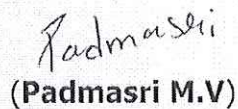 Padmasri
(Padmasri M.V)